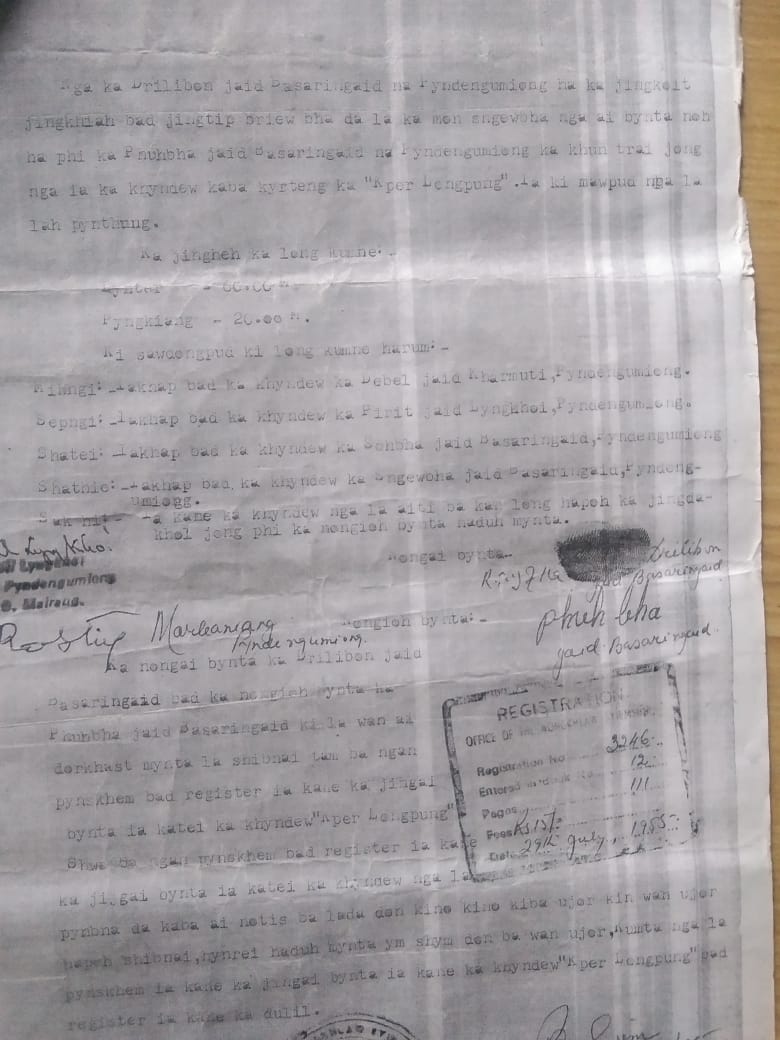 Nga ka Drilibon jaid Basaringaid na Pyndengumiong ha ka jingkoit
jingkhiah bad jingtip briew bha da la ka mon sngewbha nga ai bynta noh
ha phi ka Phuhbha jaid Basaringaid na Pyndengumiong ka khun trai jong
nga ia ka khyndew kaba kyrteng ka "Aper Longpung". Ia ki mawpud nga la
lah pynthung.
Ka jingheh ka long kumne:-
- 60.00 M.
Pyngkiang - 20.00 M.
Ki sawdongpud ki long kumne harum:-
Mihngi:-Iakhap bad ka khyndew ka Debel jaid Kharmuti,Pyndengumiong.
Sepngi:-Iakhap bad ka khyndew ka Pirit jaid Lyngkhoi,Pyndengumiong.
Shatei:-Iakhap bad ka khyndew ka jaid Basaringaid,Pyndengumiong
Shathie:-Iakhap bad ka khyndew ka Sngewbha jaid Basaringaid,Pyndeng-
umiogg.
Ia kane ka khyndew nga la aiti ba kan long hapoh ka jingda-
khol jong phi ka nongioh bynta naduh mynta.
Nongai bynta-
Drilibon
jaid Basaringaid
Pyndengumiong
Mairang.
Marbaniang
Pyndengumiong.
Nongioh bynta:-
phuh bha
jaid Basaringaid.
Ka nongai bynta ka Drilibon jaid
Basaringaid bad ka nongioh bynta ka
Phuhbha jaid Basaringaid ki la wan ai
dorkhast mynta la shibnai tam ba ngan
pynskhem bad register ia kane ka jingai
bynta ia katei ka khyndew"Aper Longpung"
Shwa ba ngan pynskhem bad register ia kane
ka jingai bynta ia katei ka khyndew nga la
pynbna da kaba ai notis ba lada don kino kino kiba ujor kin wan ujor
hapoh shibnai,hynrei haduh mynta ym shym don ba wan ujor,Kumta nga la
pynskhem ia kane ka jingai bynta ia kane ka khyndew"Aper Longpung"bad
register ia kane ka dulil.
REGISTRATION
OFFICE OF THE
Registration No 3246
Entered in Book No. 12
Pages 111
Fees
Date 29th July, 1985